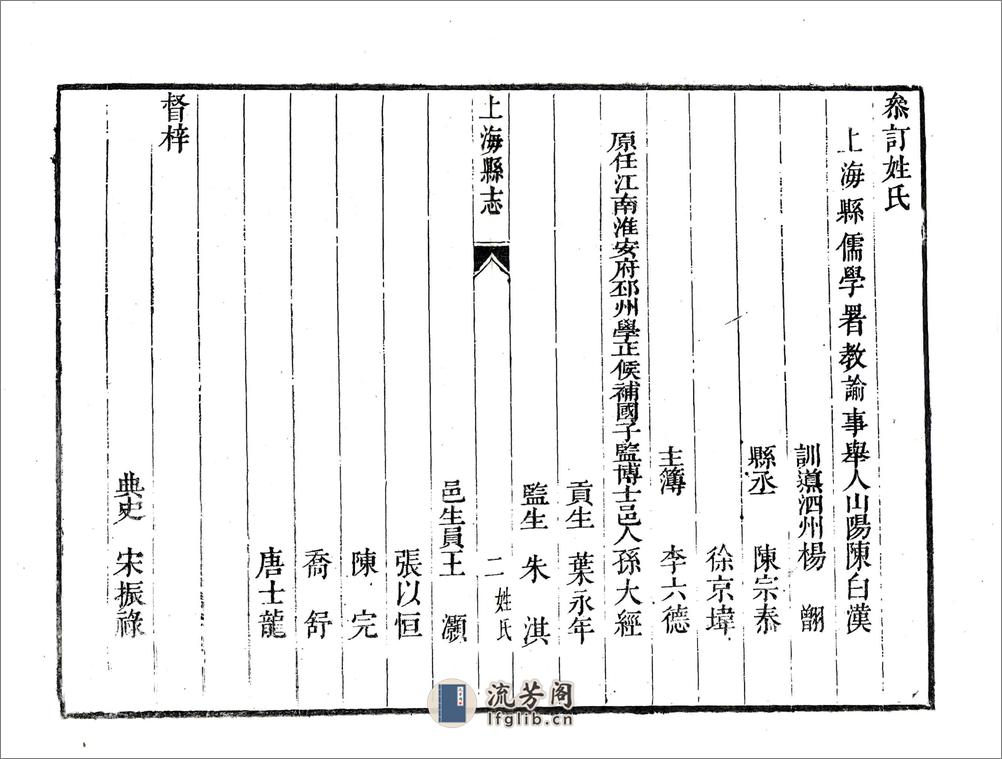 叅訂姓氏
上海縣儒學署教諭事舉人山陽陳白漢
訓導泗州楊翻
縣丞 陳宗泰
徐京墇
主簿 李六德
原任江南淮安府邳州學正候補國子監博士邑人孫大經
貢生 葉永年
監生 朱淇
上海縣志 二 姓氏
邑生員王灝
張以恒
陳完
喬舒
唐士龍
督梓
典史 宋振祿
流芳阁
lfglib.cn